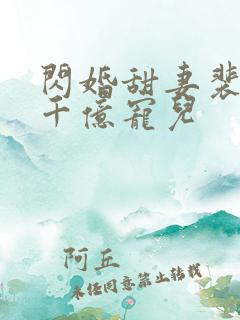 閃婚甜妻裴
千億寵兒
阿丘
未經同意禁止轉載